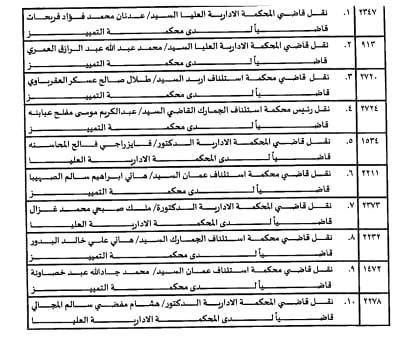 ٢٣٤٧ ١. نقل قاضي المحكمة الادارية العليا السيد/ عدنان محمد فؤاد فريحات
قاضياً لدى محكمة التمييز
٩١٣ ٢. نقل قاضي المحكمة الادارية العليا السيد/ محمد عبد الله عبد الرازق العمري
قاضياً لدى محكمة التمييز
٢٧٢٠ ٣. نقل قاضي محكمة استئناف اربد السيد/ طلال صالح عسكر العقرباوي
قاضياً لدى محكمة التمييز
٢٧٢٤ ٤. نقل رئيس محكمة استئناف الجمارك القاضي السيد/ عبدالكريم موسى مفلح عبابنه
قاضياً لدى محكمة التمييز
١٥٣٤ ٥. نقل قاضي المحكمة الادارية الدكتور/ فايز راجي فالح المحاسنه
قاضياً لدى المحكمة الادارية العليا
٢٢١١ ٦. نقل قاضي محكمة استئناف عمان السيد/ هاني ابراهيم سالم الصهيبا
قاضياً لدى محكمة التمييز
٢٣٧٣ ٧. نقل قاضي المحكمة الادارية الدكتورة/ ملك صبحي محمد غزال
قاضياً لدى المحكمة الادارية العليا
٢٢٣٢ ٨. نقل قاضي محكمة استئناف الجمارك السيد/ هاني علي خالد البدور
قاضياً لدى محكمة التمييز
١٤٧٢ ٩. نقل قاضي محكمة استئناف عمان السيد/ محمد جادالله عبد خصاونة
قاضياً لدى المحكمة الادارية العليا
٢٢٧٨ ١٠. نقل قاضي المحكمة الادارية الدكتور/ هشام مفضي سالم المجالي
قاضياً لدى المحكمة الادارية العليا